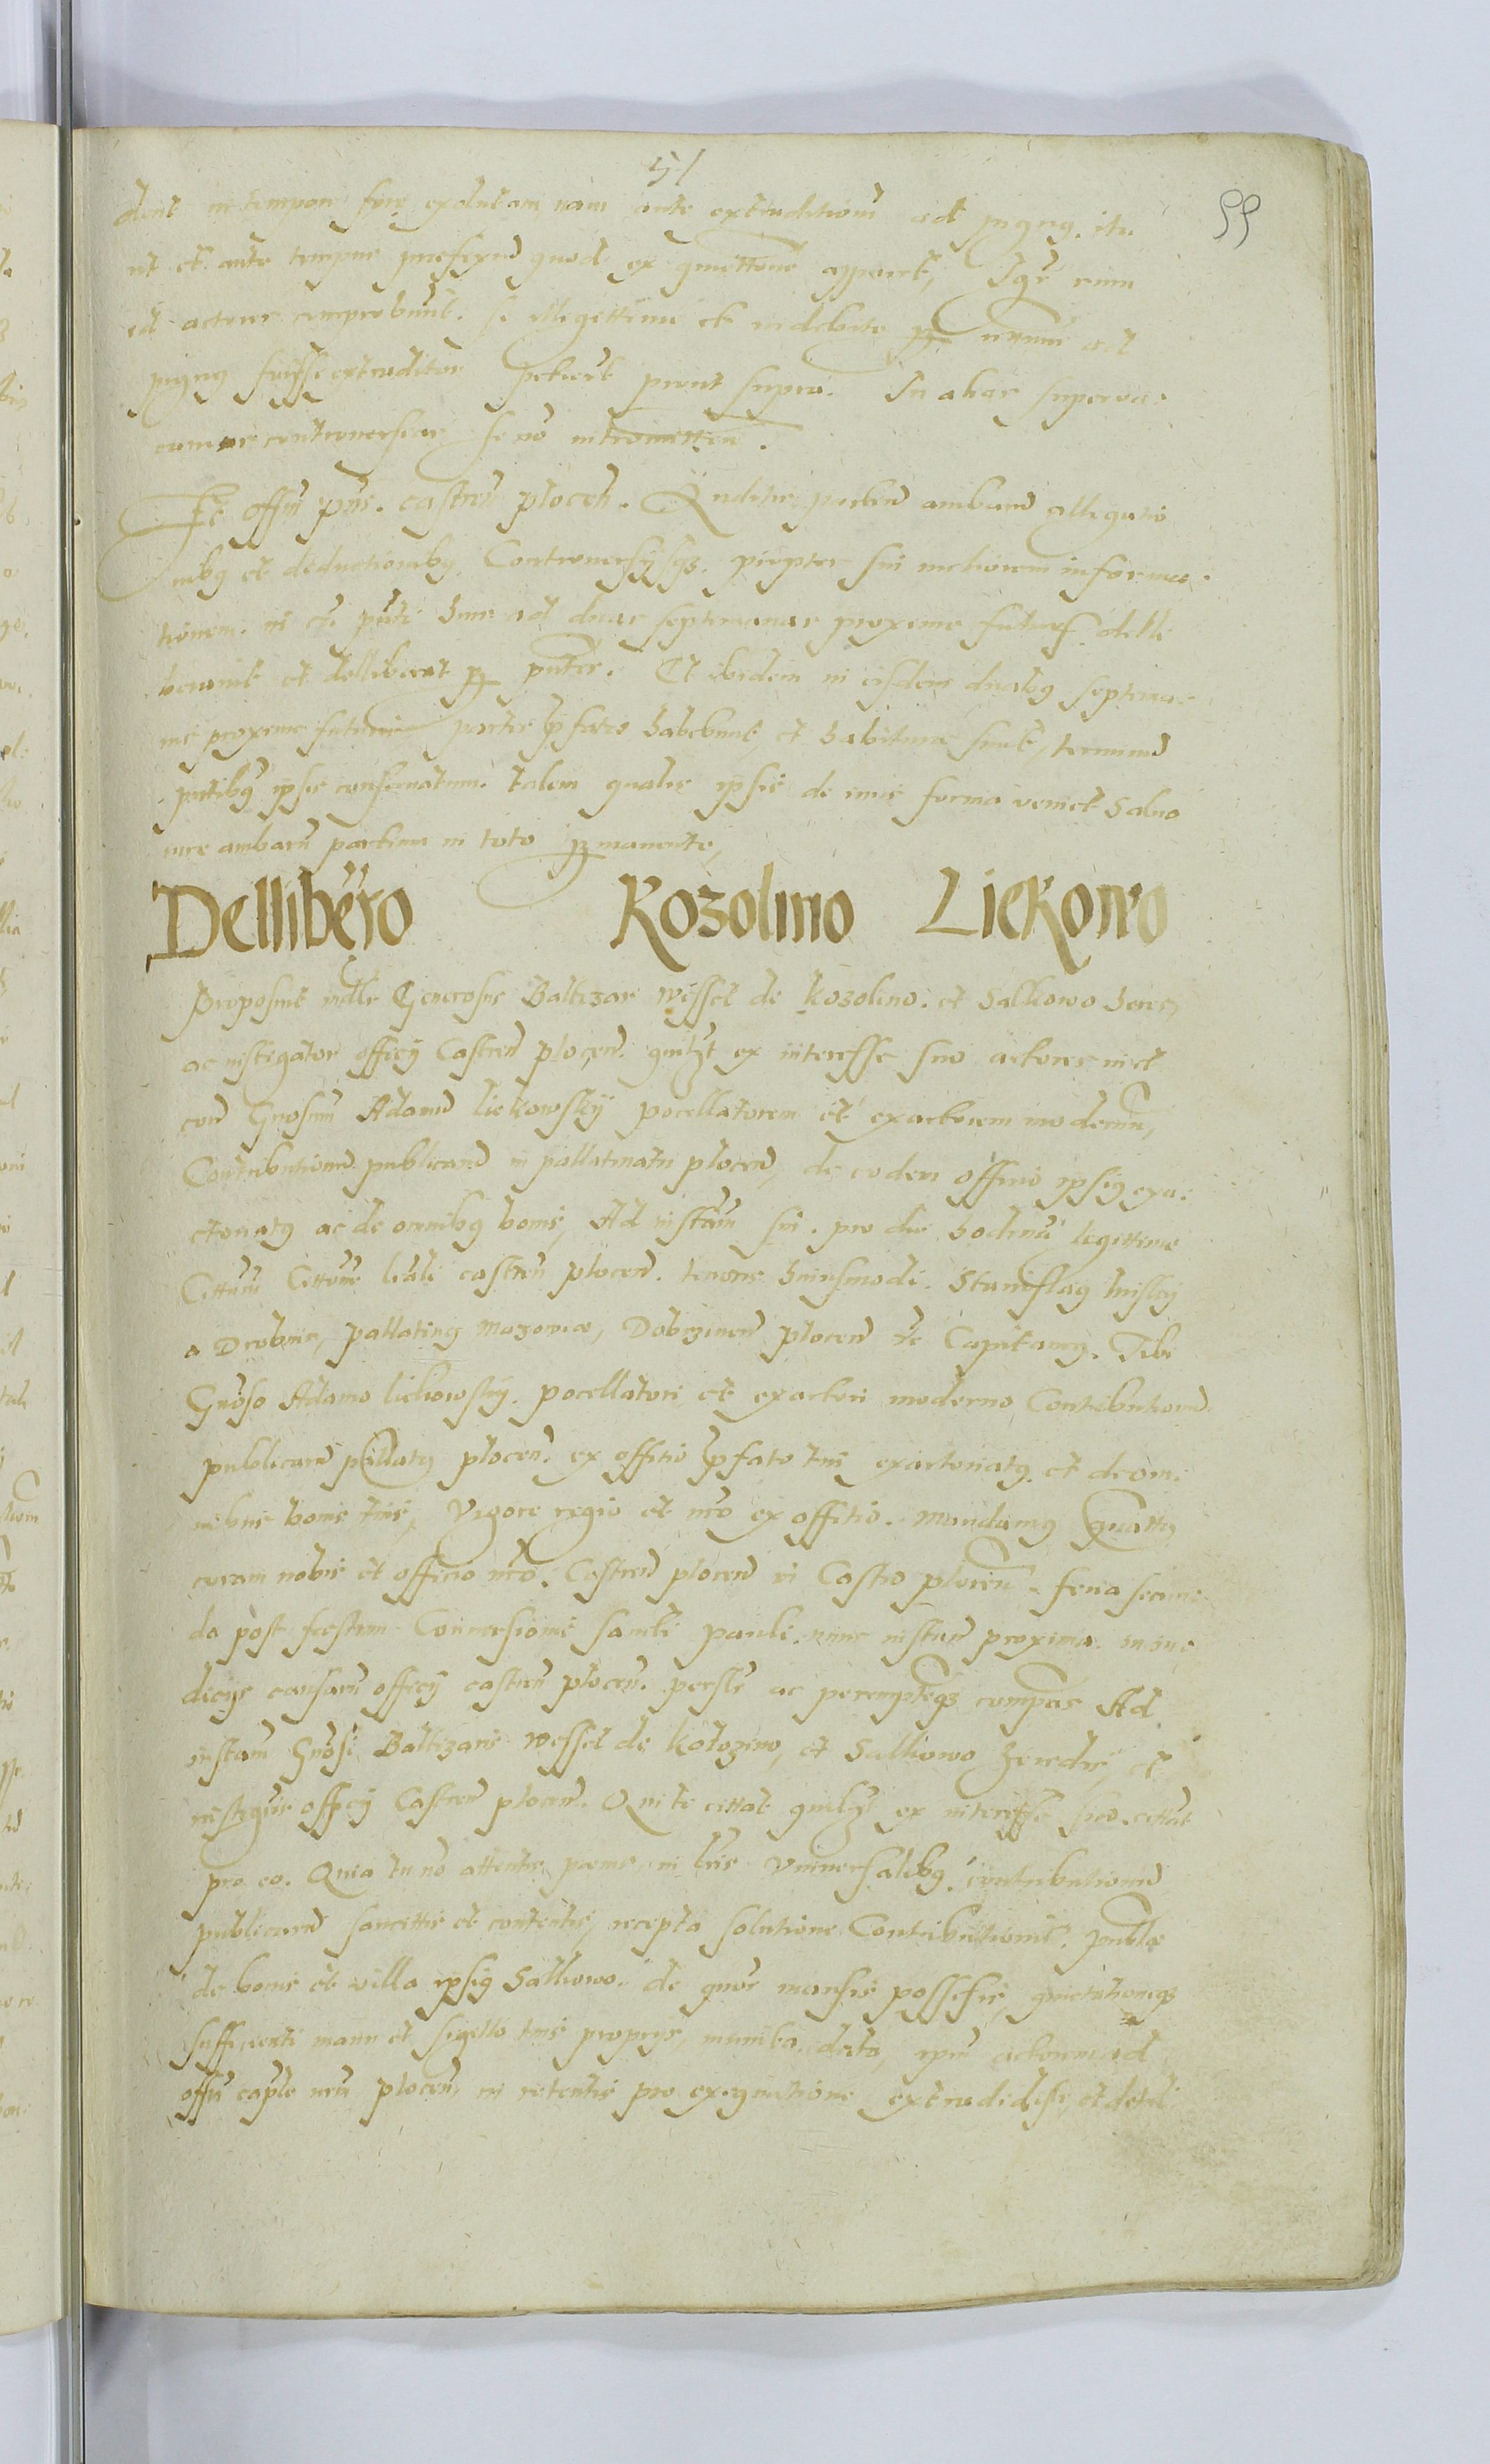 51
55
dent in tempore fore exolutam nam ante extraditionē ad pignus. ita
ut et ante tempus prefixū quod ex quiettone apparet, Igr cum
id actores comprobunt. se illegittime et indebite ad
pignus fuisse extraditos petierūt prout supra. In alias superva-
cuas controversias se nō intromitten.
Et offm pns. castren plocen. Auditis partiū ambarū allegatio
nibus et deductionibus Controversysq3. propter sui meliorem informa-
tionem. in ca pnti hinc ad duas septimanas proxime futuras delli
beravit et delliberat pnter. Et ibidem in eisdem duabus septima-
nis proxime futuris partes pfate habebunt, et habiture sunt, terminū
partibus ipsis conservatum. talem qualis ipsis de iuris forma veniet Salvo
iure ambarū partium in toto permanente,
Dellibēro Kozolino Liekowo
Proposuit Generosus Baltizar wessel de Kozolino. et Salkowo heres,
ac instigator officy Castren plocen. quilzt ex interesse suo actores
con Gnosum Adamū liekowsky pocellatorem et exactorem modernū,
Contributionū publicarū in pallatinatu plocen, de eodem officio ipsius exa-
ctoratus ac de omnibus bonis, Ad instam sui. pro die hodierna legittime
Cittatum Cittone castren plocen. tenoris huiusmodi. Stanislaus krisky
a Drobnin, pallatinus mazovie, Dobrzinen plocen Capitaneus. Tibi
Gnoso Adamo liekowsky. pocellatori et exactori moderno Contributionū
publicarū pallatus plocen. ex offitio pfato tui exactoratus et de om-
nibus bonis tuis, Vigore regio et nro ex offitio. Mandamus quattus
coram nobis et officio nro. Castren plocen in Castro plocen. feria secun-
da post festum Conversionis sancti pauli. nunc instan proxima. in iu-
dicys causarū officy castren plocen. persler ac peremptorieq3 compars Ad
instam Gnosi Baltizaris wessel de kolozino, et Salkowo heredis, et
instigatoris officy Castren plocen. Qui te cittat quilzt ex interesse suo. cittat
pro eo. Quia tu nō attentis penis, in lris Universalibus contributionū
publicarū sancittis et contentis, recepta solutione Contributionis. publce
de bonis et villa ipsius Salkowo. de mansis possessis, quietationeq3
sufficienti manu et sigillo tuis proprys, munita. data, ipm actorem ad
offm caple nrū plocen. in retentis pro exequutione extradidisse, et detul